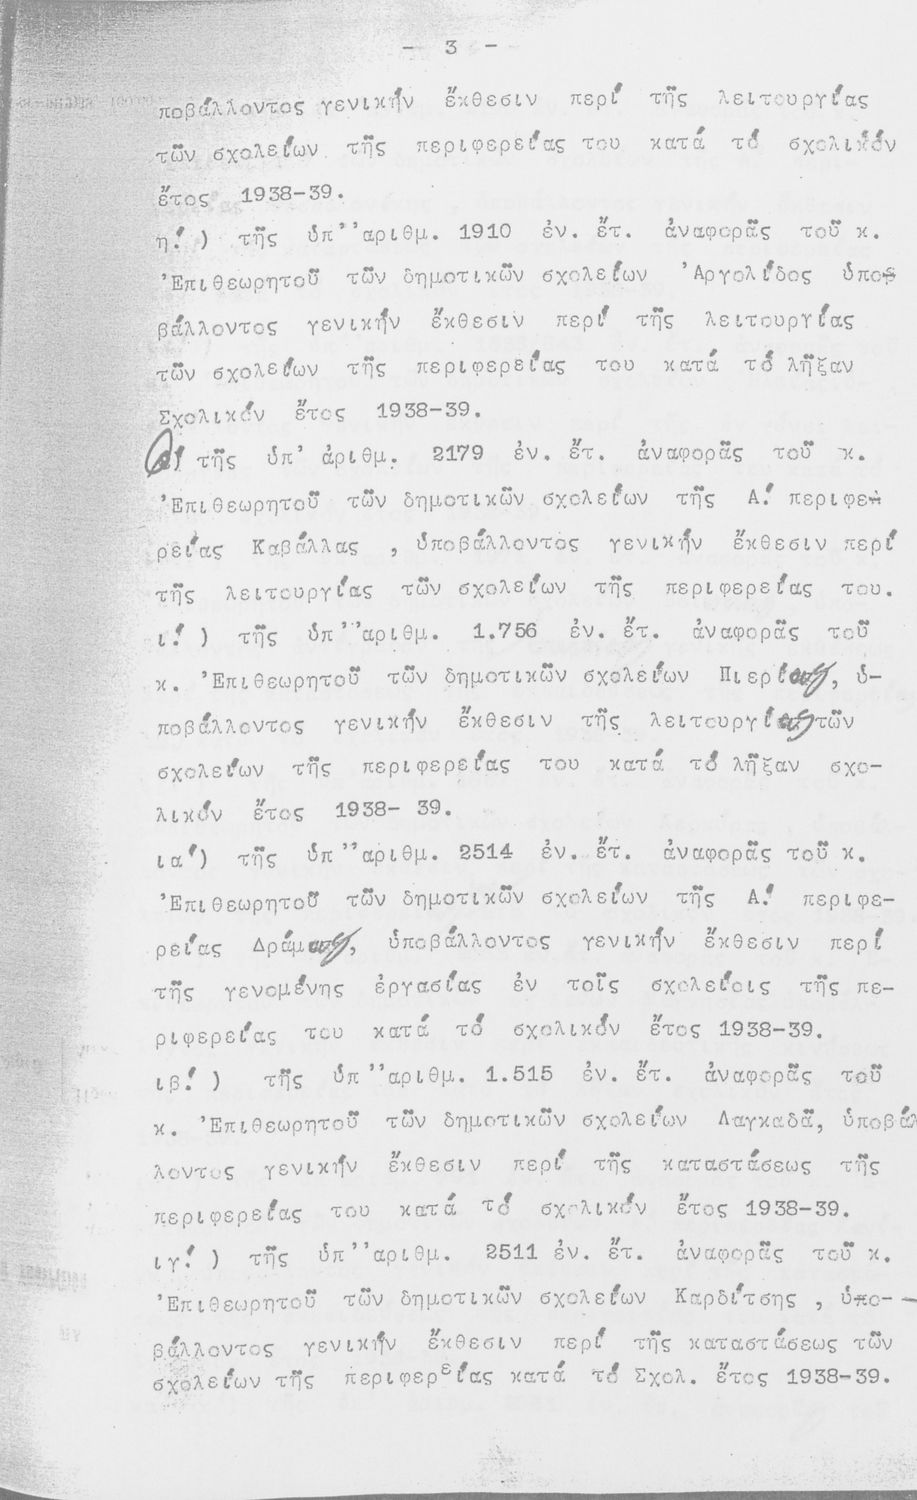 - 3 -
ποβάλλοντος γενικήν ἔκθεσιν περί τῆς λειτουργίας
τῶν σχολείων τῆς περιφερείας του κατά τό σχολικόν
ἔτος 1938-39.
η!) τῆς ὑπ''αριθμ. 1910 ἐν. ἔτ. ἀναφορᾶς τοῦ κ.
'Επιθεωρητοῦ τῶν δημοτικῶν σχολείων 'Αργολίδος ὑπο-
βάλλοντος γενικήν ἔκθεσιν περί τῆς λειτουργίας
τῶν σχολείων τῆς περιφερείας του κατά τό λῆξαν
Σχολικόν ἔτος 1938-39.
θ!) τῆς ὑπ' ἀριθμ. 2179 ἐν. ἔτ. ἀναφορᾶς τοῦ κ.
'Επιθεωρητοῦ τῶν δημοτικῶν σχολείων τῆς Α! περιφε-
ρείας Καβάλλας , ὑποβάλλοντος γενικήν ἔκθεσιν περί
τῆς λειτουργίας τῶν σχολείων τῆς περιφερείας του.
ι!) τῆς ὑπ''αριθμ. 1.756 ἐν. ἔτ. ἀναφορᾶς τοῦ
κ. 'Επιθεωρητοῦ τῶν δημοτικῶν σχολείων Πιερίας, ὑ-
ποβάλλοντος γενικήν ἔκθεσιν τῆς λειτουργίας τῶν
σχολείων τῆς περιφερείας του κατά τό λῆξαν σχο-
λικόν ἔτος 1938- 39.
ια') τῆς ὑπ''αριθμ. 2514 ἐν. ἔτ. ἀναφορᾶς τοῦ κ.
'Επιθεωρητοῦ τῶν δημοτικῶν σχολείων τῆς Α! περιφε-
ρείας Δράμας, ὑποβάλλοντος γενικήν ἔκθεσιν περί
τῆς γενομένης ἐργασίας ἐν τοῖς σχολείοις τῆς πε-
ριφερείας του κατά τό σχολικόν ἔτος 1938-39.
ιβ!) τῆς ὑπ''αριθμ. 1.515 ἐν. ἔτ. ἀναφορᾶς τοῦ
κ. 'Επιθεωρητοῦ τῶν δημοτικῶν σχολείων Λαγκαδᾶ, ὑποβάλ
λοντος γενικήν ἔκθεσιν περί τῆς καταστάσεως τῆς
περιφερείας του κατά τό σχολικόν ἔτος 1938-39.
ιγ!) τῆς ὑπ''αριθμ. 2511 ἐν. ἔτ. ἀναφορᾶς τοῦ κ.
'Επιθεωρητοῦ τῶν δημοτικῶν σχολείων Καρδίτσης , ὑπο-
βάλλοντος γενικήν ἔκθεσιν περί τῆς καταστάσεως τῶν
σχολείων τῆς περιφερείας κατά τό Σχολ. ἔτος 1938-39.